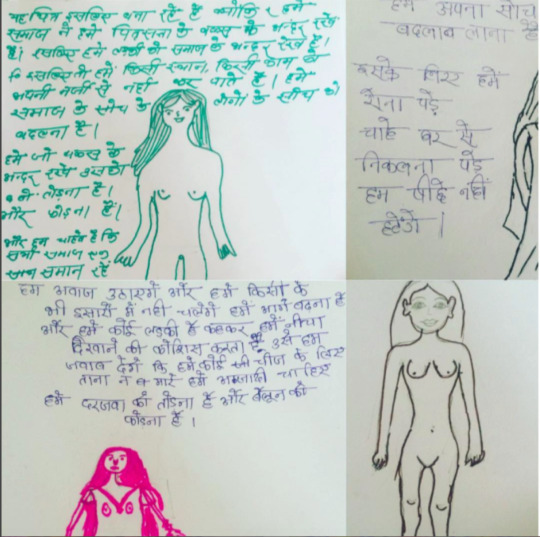 यह चित्र इसलिए बना रहे हैं क्योंकि हमने
समाज ने हमें पितृसत्ता के बक्स के अन्दर रखे
हैं। इसलिए हमें लड़की को समाज के अन्दर रखे हैं।
इसलिए तो हमें किसी स्थान, किसी काम को
अपनी मर्जी से नहीं कर पाते हैं। हमें
समाज के सोच के लोगों के सोच को
बदलना है।
हमें जो बक्स के
अन्दर रखे उसको
तोड़ना है।
और फोड़ना है।
और हम चाहते हैं कि
सभी समाज
साथ समान रहे
हम अपना सोच
बदलाव लाना है
इसके लिए हमें
रोना पड़े
चाहे घर से
निकलना पड़े
हम पीछे नहीं
हटेंगे।
हम अवाज उठाएगे और हमें किसी के
भी इसारों में नहीं चलेगें हमें आगे बढना है
और हमें कोई लड़की है कहकर हमें नीचा
दिखाने की कोशिस करता है उसे हम
जवाब देंगे कि हमें कोई भी चीज के लिए
ताना न मारे हमें आजादी चाहिए
हमें दरजवा को तोडना है और बेलून को
फोडना है।